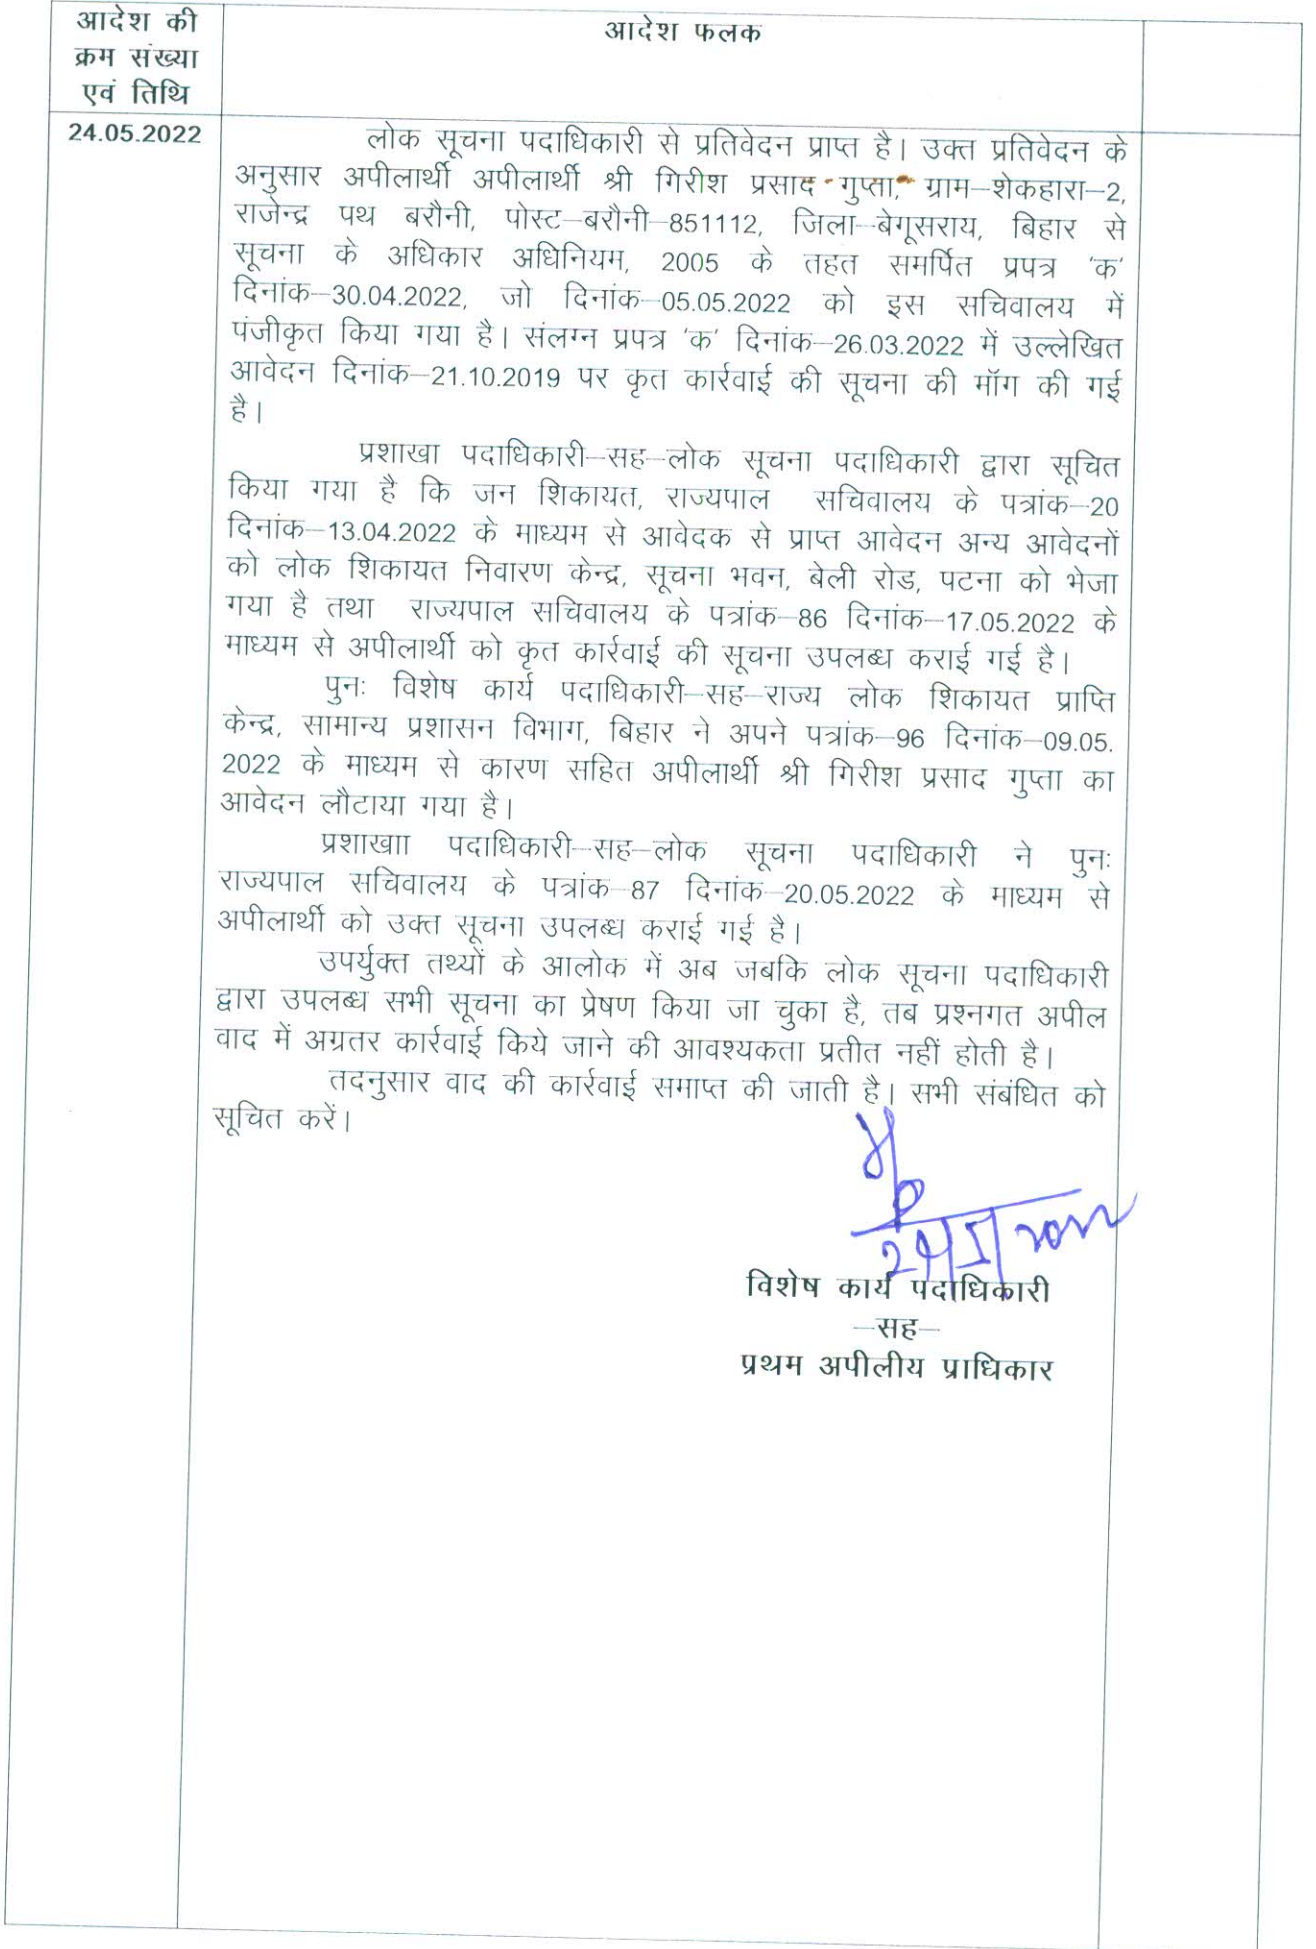 आदेश की
क्रम संख्या
एवं तिथि
आदेश फलक
24.05.2022
लोक सूचना पदाधिकारी से प्रतिवेदन प्राप्त है। उक्त प्रतिवेदन के
अनुसार अपीलार्थी अपीलार्थी श्री गिरीश प्रसाद गुप्ता, ग्राम–शेकहारा–2,
राजेन्द्र पथ बरौनी, पोस्ट–बरौनी–851112, जिला–बेगूसराय, बिहार से
सूचना के अधिकार अधिनियम, 2005 के तहत समर्पित प्रपत्र 'क'
दिनांक–30.04.2022, जो दिनांक–05.05.2022 को इस सचिवालय में
पंजीकृत किया गया है। संलग्न प्रपत्र 'क' दिनांक–26.03.2022 में उल्लेखित
आवेदन दिनांक–21.10.2019 पर कृत कार्रवाई की सूचना की मॉग की गई
है।
प्रशाखा पदाधिकारी–सह–लोक सूचना पदाधिकारी द्वारा सूचित
किया गया है कि जन शिकायत, राज्यपाल सचिवालय के पत्रांक–20
दिनांक–13.04.2022 के माध्यम से आवेदक से प्राप्त आवेदन अन्य आवेदनों
को लोक शिकायत निवारण केन्द्र, सूचना भवन, बेली रोड, पटना को भेजा
गया है तथा राज्यपाल सचिवालय के पत्रांक–86 दिनांक–17.05.2022 के
माध्यम से अपीलार्थी को कृत कार्रवाई की सूचना उपलब्ध कराई गई है।
पुनः विशेष कार्य पदाधिकारी–सह–राज्य लोक शिकायत प्राप्ति
केन्द्र, सामान्य प्रशासन विभाग, बिहार ने अपने पत्रांक–96 दिनांक–09.05.
2022 के माध्यम से कारण सहित अपीलार्थी श्री गिरीश प्रसाद गुप्ता का
आवेदन लौटाया गया है।
प्रशाखाा पदाधिकारी–सह–लोक सूचना पदाधिकारी ने पुनः
राज्यपाल सचिवालय के पत्रांक–87 दिनांक–20.05.2022 के माध्यम से
अपीलार्थी को उक्त सूचना उपलब्ध कराई गई है।
उपर्युक्त तथ्यों के आलोक में अब जबकि लोक सूचना पदाधिकारी
द्वारा उपलब्ध सभी सूचना का प्रेषण किया जा चुका है, तब प्रश्नगत अपील
वाद में अग्रतर कार्रवाई किये जाने की आवश्यकता प्रतीत नहीं होती है।
तदनुसार वाद की कार्रवाई समाप्त की जाती है। सभी संबंधित को
सूचित करें।
24/5/2022
विशेष कार्य पदाधिकारी
–सह–
प्रथम अपीलीय प्राधिकार